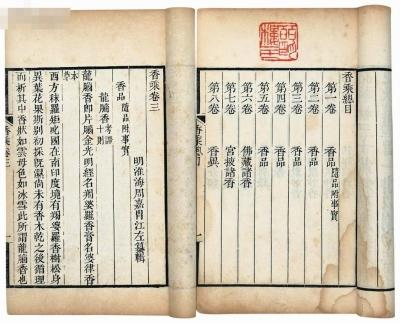 香乘總目
第一卷　香品 隨品附事實
第二卷　香品
第三卷　香品
第四卷　香品
第五卷　香品
第六卷　佛藏諸香
第七卷　宮掖諸香
第八卷　香異
香乘總目
一
香乘卷三
明淮海周嘉胄江左纂輯
香品 隨品附事實
龍腦香 考證十則
龍腦香即片腦金光明經名羯婆羅香膏名婆律香
本草
西方秣羅矩吒國在南印度境有羯婆羅香樹松身
異葉花果斯別初採既濕尚未有香木乾之後循理
而析其中香狀如雲母色如冰雪此所謂龍腦香也
香乘卷三